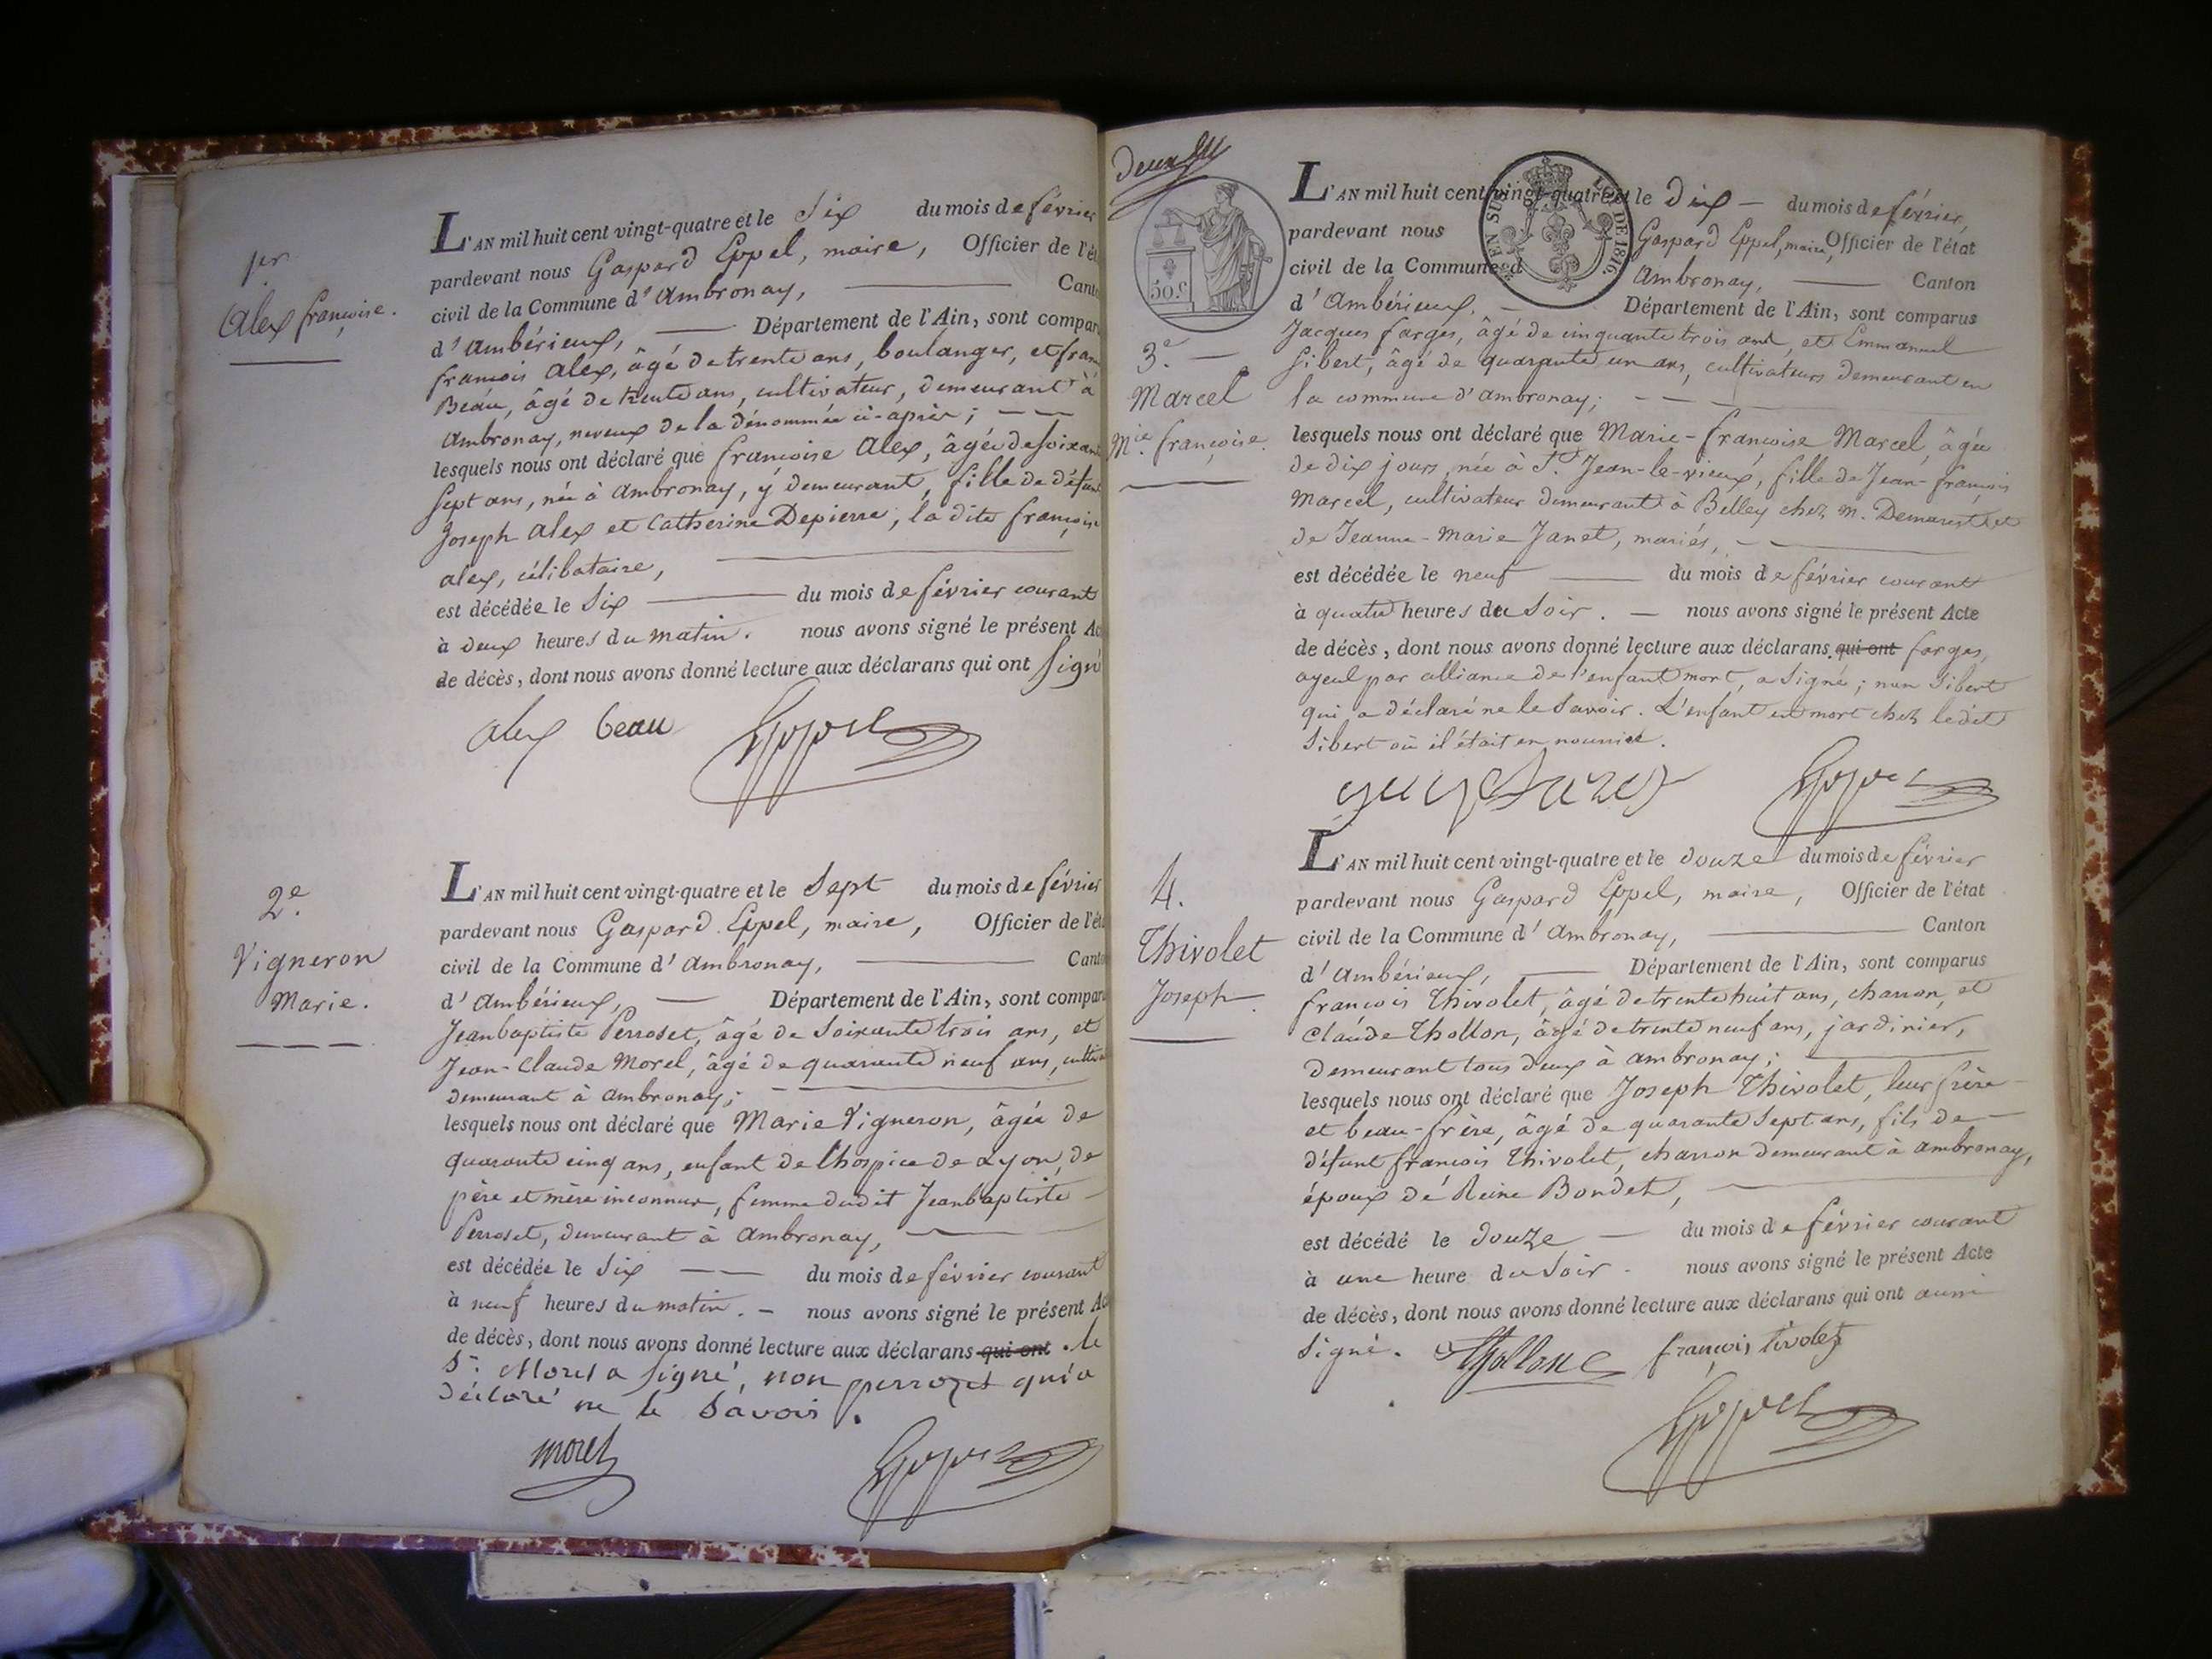 1er
Alex françoise.
L'AN mil huit cent vingt-quatre et le Six du mois de février
pardevant nous Gaspard Eppel, maire, Officier de l'ét
civil de la Commune d'Ambronay, Canto
d'Ambérieux, Département de l'Ain, sont compar
françois Alex, âgé de trente ans, boulanger, et fran
Beau, âgé de trente ans, cultivateur, demeurant à
Ambronay, neveux de la dénommée ci-après;
lesquels nous ont déclaré que françoise Alex, âgée de soixant
Sept ans, née à Ambronay, y demeurant, fille de défunt
Joseph Alex et Catherine Depierre, la dite françoise
Alex, célibataire,
est décédée le Six du mois de février courant
à deux heures du matin. nous avons signé le présent Ac
de décès, dont nous avons donné lecture aux déclarans qui ont Signé
alex beau Eppel
2e.
Vigneron
Marie.
L'AN mil huit cent vingt-quatre et le Sept du mois de février
pardevant nous Gaspard Eppel, maire, Officier de l'éta
civil de la Commune d'Ambronay, Canto
d'Ambérieux, Département de l'Ain, sont compar
Jeanbaptiste Perroset, âgé de Soixante trois ans, et
Jean-Claude Morel, âgé de quarante neuf ans, cultiv
demeurant à Ambronay;
lesquels nous ont déclaré que Marie Vigneron, âgée de
quarante cinq ans, enfant de l'hospice de Lyon, de
père et mère inconnus, femme dudit Jeanbaptiste
Perroset, demeurant à Ambronay,
est décédée le Six du mois de février courant
à neuf heures du matin. nous avons signé le présent Ac
de décès, dont nous avons donné lecture aux déclarans qui ont . le
Sr. Morel a Signé, non perrozet qui a
déclaré ne le Savoir.
morel Eppel
deux
50.c
EN SUS LOI DE 1816.
3e.
Marcel
Mie. françoise.
L'AN mil huit cent vingt-quatre et le dix du mois de février,
pardevant nous Gaspard Eppel, maire, Officier de l'état
civil de la Commune d'Ambronay, Canton
d'Ambérieux, Département de l'Ain, sont comparus
Jacques farges, âgé de cinquante trois ans, et Emmanuel
Sibert, âgé de quarante un ans, cultivateurs demeurant en
la commune d'Ambronay;
lesquels nous ont déclaré que Marie-françoise Marcel, âgée
de dix jours, née à St. Jean-le-vieux, fille de Jean-françois
Marcel, cultivateur demeurant à Belley chez M. Demarest et
de Jeanne-Marie Janet, mariés,
est décédée le neuf du mois de février courant
à quatre heures du Soir. nous avons signé le présent Acte
de décès, dont nous avons donné lecture aux déclarans, qui ont farges,
ayeul par alliance de l'enfant mort, a Signé; non Sibert
qui a déclaré ne le Savoir. L'enfant est mort chez ledit
Sibert où il était en nourrice.
Eppel
4.
Thivolet
Joseph.
L'AN mil huit cent vingt-quatre et le douze du mois de février
pardevant nous Gaspard Eppel, maire, Officier de l'état
civil de la Commune d'Ambronay, Canton
d'Ambérieux, Département de l'Ain, sont comparus
françois Thivolet, âgé de trente huit ans, charron, et
Claude Thollon, âgé de trente neuf ans, jardinier,
demeurant tous deux à Ambronay;
lesquels nous ont déclaré que Joseph Thivolet, leur frère
et beau-frère, âgé de quarante Sept ans, fils de
défunt françois Thivolet, charron demeurant à Ambronay,
époux de Reine Bondet,
est décédé le douze du mois de février courant
à une heure du Soir. nous avons signé le présent Acte
de décès, dont nous avons donné lecture aux déclarans qui ont aussi
Signé. Thollon françois tivolet
Eppel